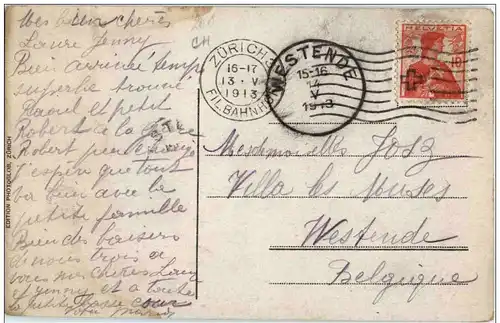 Mes bien chères
Laure Jenny
Bien arrivée temps
superbe trouvé
Raoul et petit
Robert à la gare
Robert
J'espère que tout
va bien avec la
petite famille
Bien des baisers
de nous trois à
vous mes chères Laure
et Jenny et à toute
la petite
Marie
EDITION PHOTOGLOB, ZÜRICH
CH
ZÜRICH
16-17
13·V
1913
FIL. BAHNHOF
WESTENDE
15-16
14
V
1913
HELVETIA
10
Mesdemoiselles Josz
Villa les Muses
Westende
Belgique